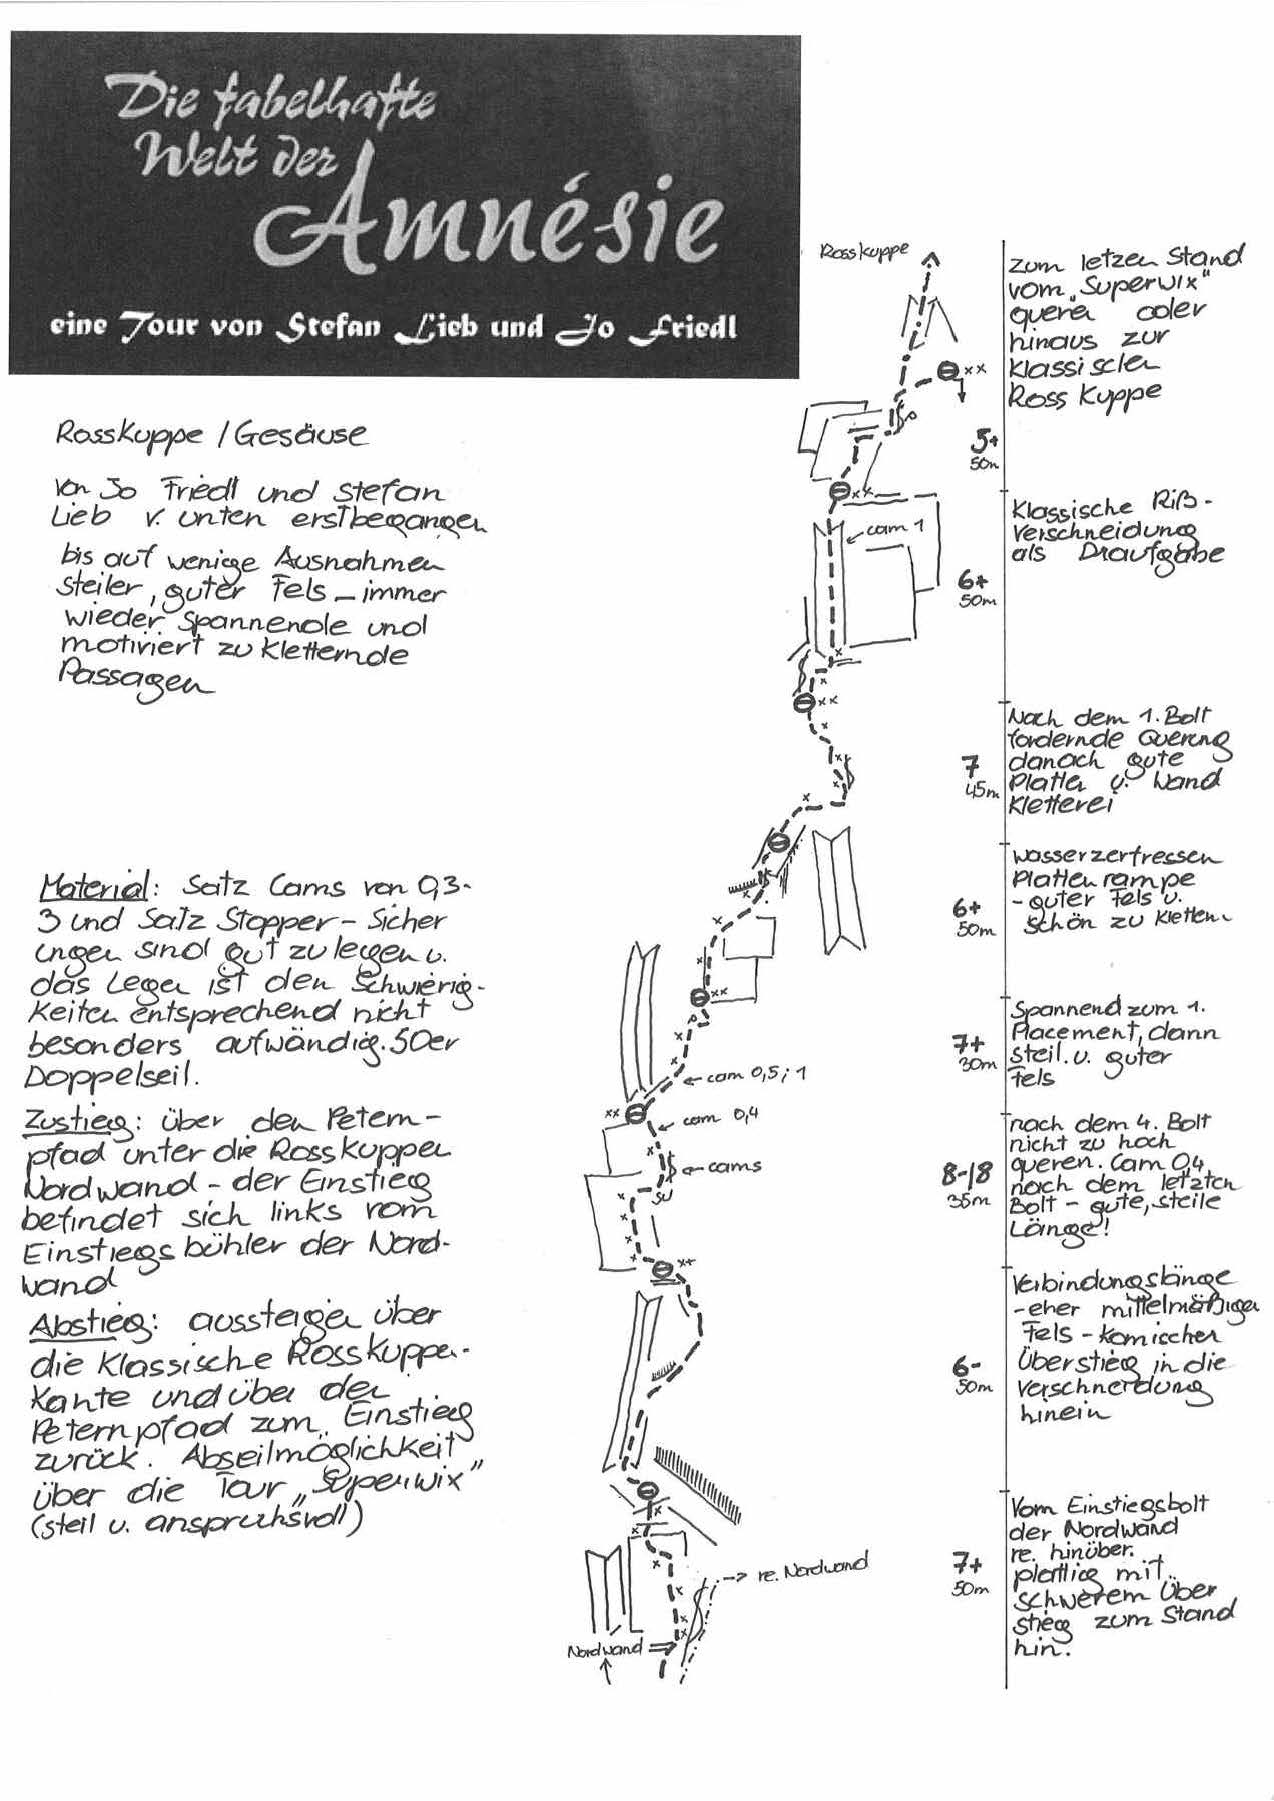 Die fabelhafte
Welt der
Amnésie
eine Tour von Stefan Lieb und Jo Friedl
Rosskuppe / Gesäuse
von Jo Friedl und Stefan
Lieb v. unten erstbegangen
bis auf wenige Ausnahmen
steiler, guter Fels – immer
wieder spannende und
motiviert zu kletternde
Passagen
Material: Satz Cams von 0,3-
3 und Satz Stopper – Sicher
ungen sind gut zu legen u.
das Legen ist den Schwierig-
keiten entsprechend nicht
besonders aufwändig. 50er
Doppelseil.
Zustieg: über den Petern-
pfad unter die Rosskuppen
Nordwand – der Einstieg
befindet sich links vom
Einstiegsbühler der Nord-
wand
Abstieg: aussteigen über
die klassische Rosskuppen-
kante und über den
Peternpfad zum Einstieg
zurück. Abseilmöglichkeit
über die Tour „Superwix"
(steil u. anspruchsvoll)
Rosskuppe
xx
xx
cam 1
xx
xx
cam 0,5; 1
xx
cam 0,4
cams
SU
xx
→ re. Nordwand
Nordwand
zum letzen Stand
vom „Superwix"
queren oder
hinaus zur
klassischen
Ross Kuppe
5+
50m
Klassische Riß-
verschneidung
als Draufgabe
6+
50m
Nach dem 1. Bolt
fordernde Querung
danach gute
Platten u. Wand
Kletterei
7
45m
wasserzerfressen
Plattenrampe
- guter Fels u.
schön zu klettern
6+
50m
Spannend zum 1.
Placement, dann
steil. u. guter
Fels
7+
30m
nach dem 4. Bolt
nicht zu hoch
queren. Cam 0,4
nach dem letzten
Bolt – gute, steile
Länge!
8-/8
35m
Verbindungslänge
- eher mittelmäßiger
Fels – komischer
Überstieg in die
Verschneidung
hinein
6-
50m
Vom Einstiegsbolt
der Nordwand
re. hinüber.
plattig mit
schwerem Über
stieg zum Stand
hin.
7+
50m